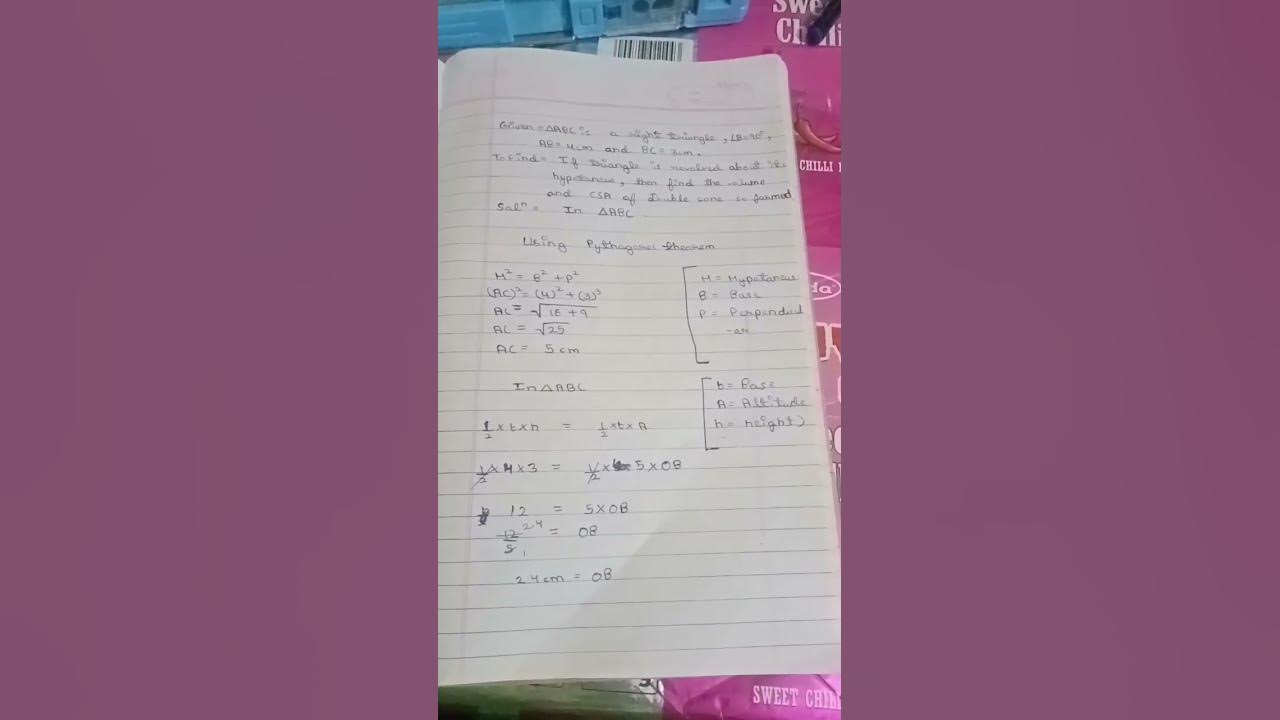 Swe
Chilli
CHILLI
Given = ∆ABC is a right triangle, ∠B=90°,
AB= 4cm and BC = 3cm.
To Find = If triangle is revolved about its
hypotenus, then find the volume
and CSA of Double cone so formed
Solⁿ = In ∆ABC.
Using Pythagorus theorem
H² = B² + P²
(AC)² = (4)² + (3)²
AC = √16 + 9
AC = √25
AC = 5 cm
[ H = Hypotenus
B = Base
P = Perpendicul
-ar
In ∆ABC
[ b = Base
A = Altitude
h = height)
1/2 × b × h = 1/2 × b × A
1/2 × 4 × 3 = 1/2 × 5 × OB
12 = 5 × OB
12/5 2.4 1 = OB
2.4 cm = OB
SWEET CHIL